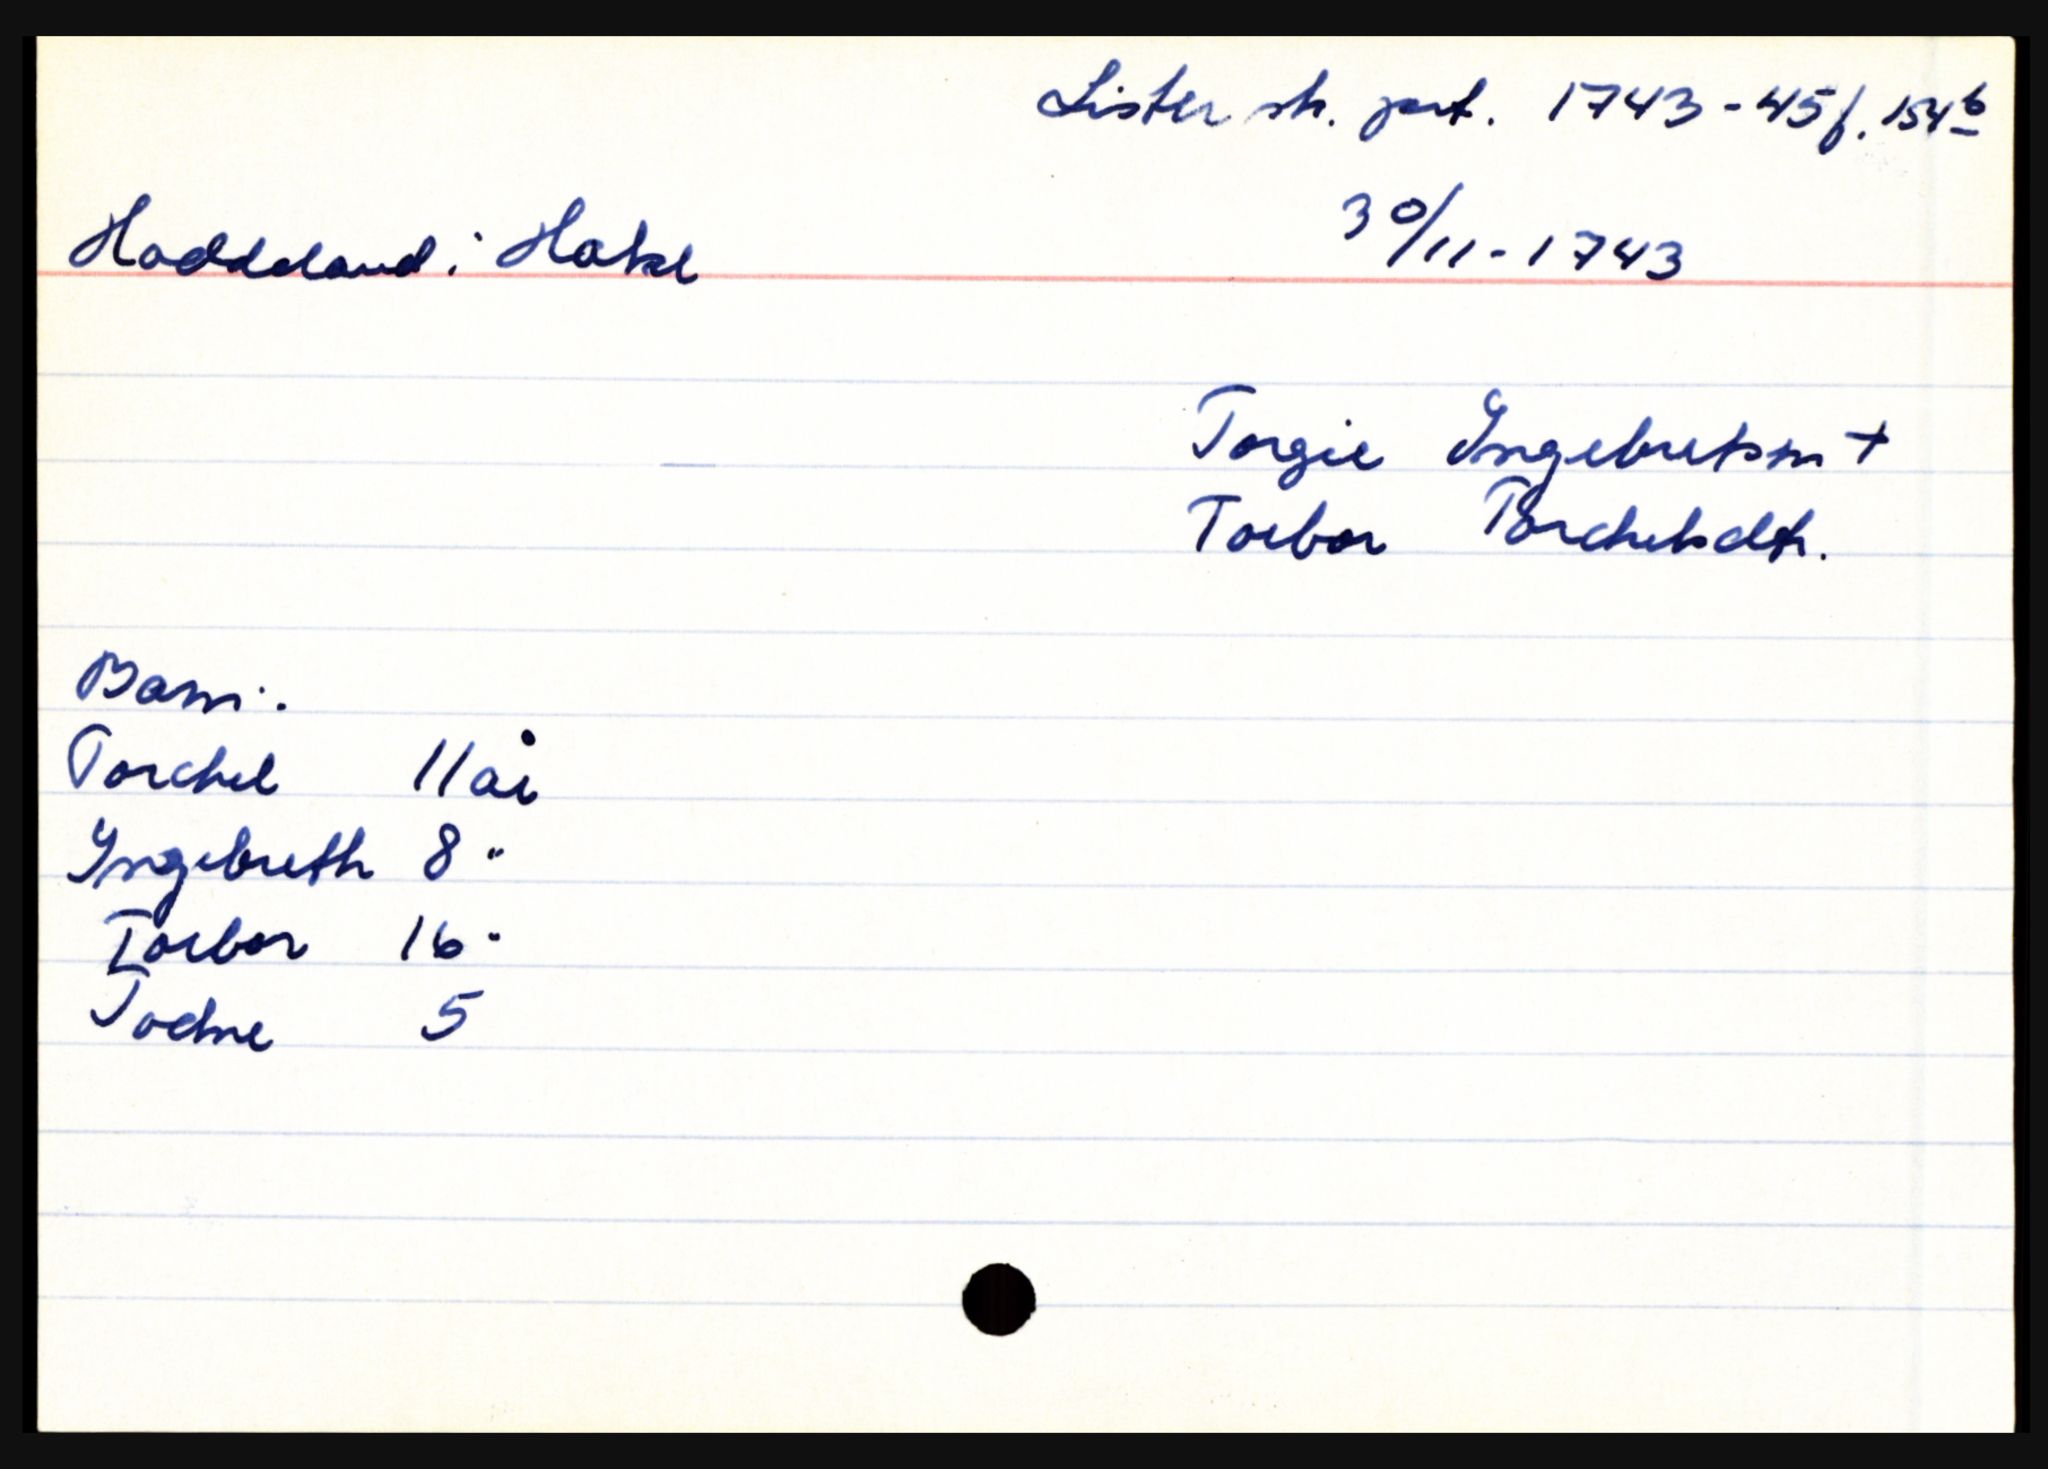 Lister sk. prt. 1743-45 f. 154b
Haddeland i Hakel
30/11-1743
Torgie Ingebretsen +
Torbor Torchelsdtr.
Barn:
Torchel 11 år
Ingebreth 8 "
Torbor 16 "
Todne 5